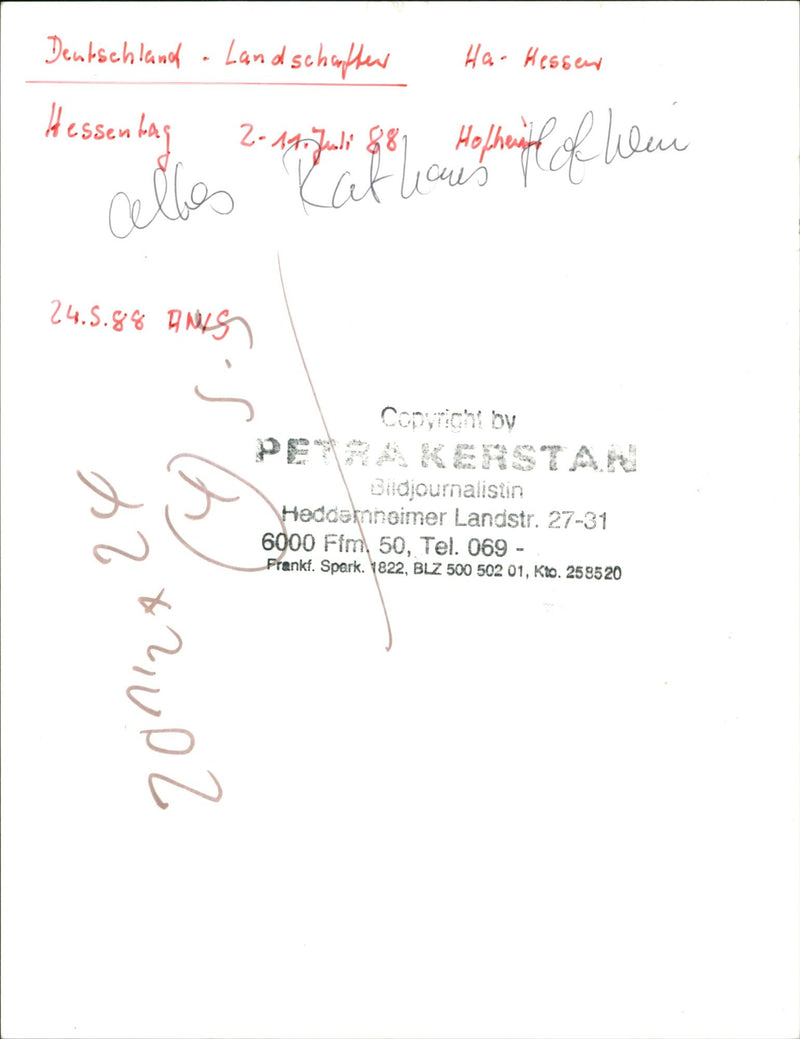 Deutschland - Landschaften Ha - Hessen
Hessentag 2-11. Juli 88 Hofheim
altes Rathaus Hofheim
24.5.88
Copyright by
PETRA KERSTAN
Bildjournalistin
Heddernheimer Landstr. 27-31
6000 Ffm. 50, Tel. 069 -
Frankf. Spark. 1822, BLZ 500 502 01, Kto. 258520